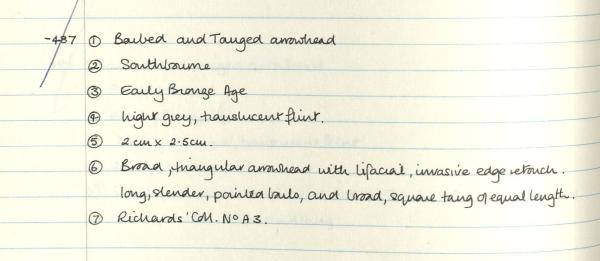 -487 ① Barbed and Tanged arrowhead
② Southbourne
③ Early Bronze Age
④ Light grey, translucent flint.
⑤ 2cm x 2.5cm.
⑥ Broad, triangular arrowhead with bifacial, invasive edge retouch.
long, slender, pointed barbs, and broad, square tang of equal length.
⑦ Richards' Coll. No A3.